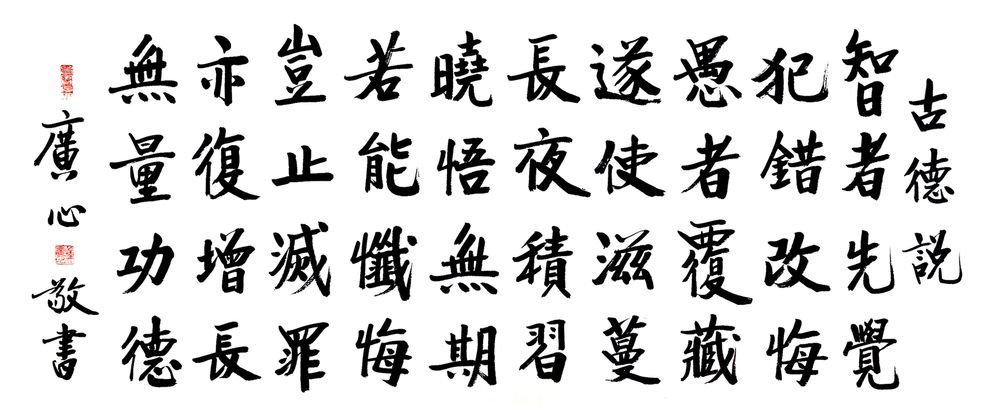 古德説
智者先覺
犯錯改悔
愚者覆藏
遂使滋蔓
長夜積習
曉悟無期
若能懺悔
豈止滅罪
亦復增長
無量功德
廣心敬書